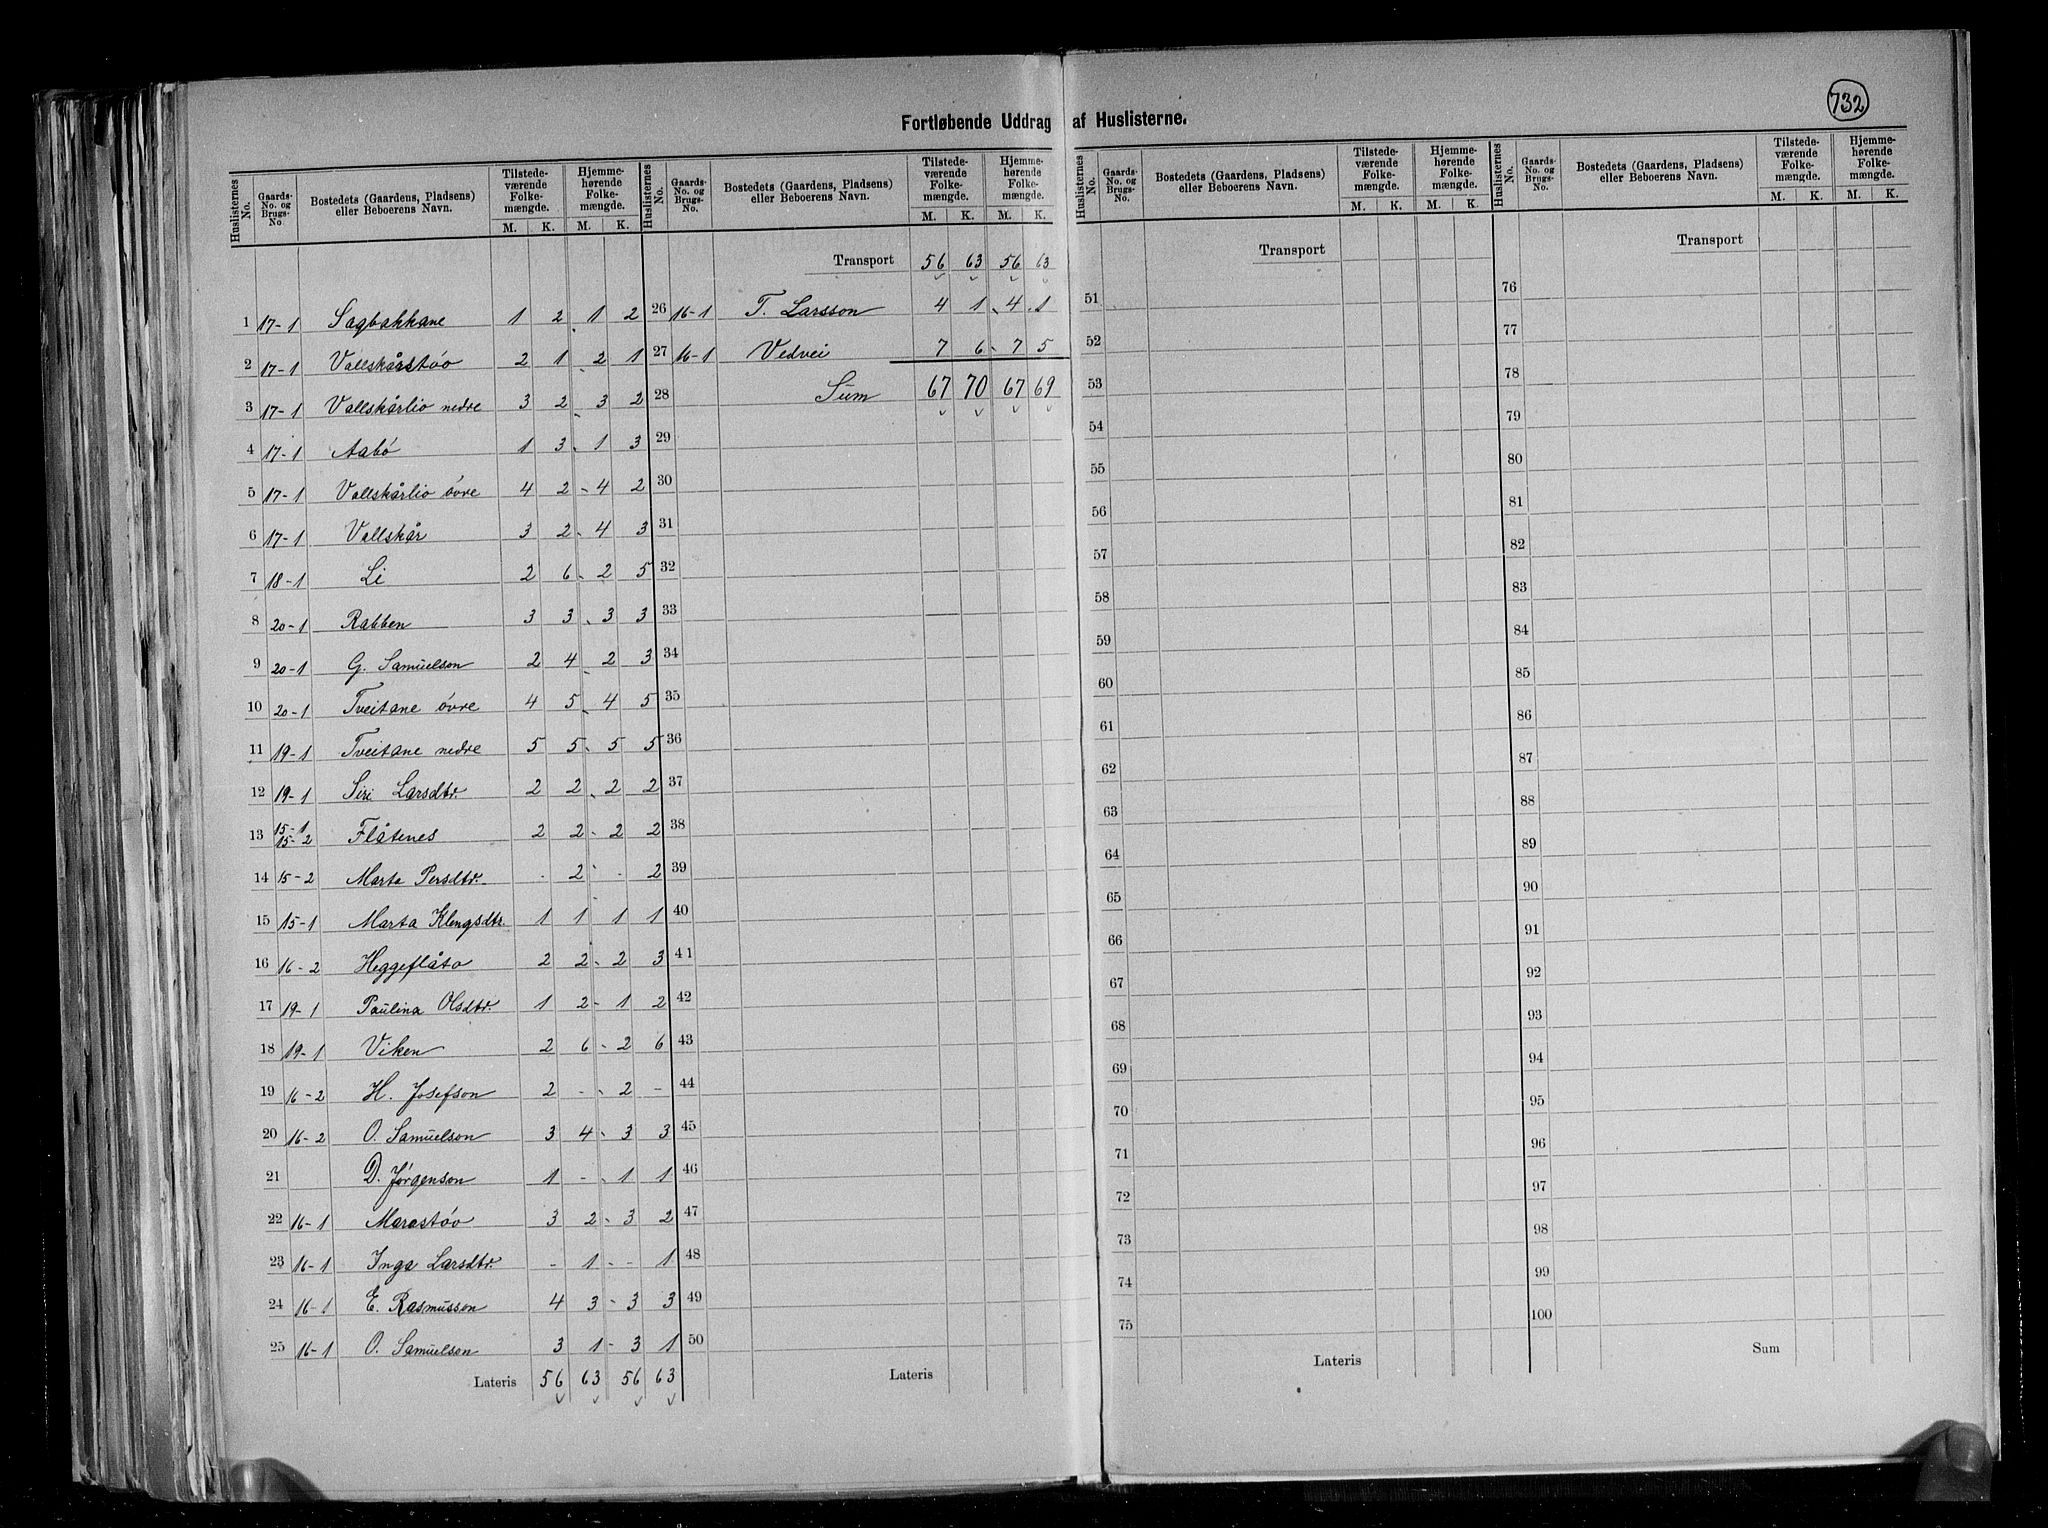 732
Fortløbende Uddrag af Huslisterne.
Huslisternes No. Gaards-No. og Brugs-No. Bostedets (Gaardens, Pladsen) eller Beboerens Navn. Tilstedeværende Folkemængde. M. K. Hjemmehørende Folkemængde. M. K.
1 17-1 Sagbakkane 1 2 1 2
2 17-1 Vallskårstøo 2 1 2 1
3 17-1 Vallskårlio nedre 3 2 3 2
4 17-1 Aabø 1 3 1 3
5 17-1 Vallskårlio övre 4 2 4 2
6 17-1 Vallskår 3 2 4 3
7 18-1 Li 2 6 2 5
8 20-1 Rabben 3 3 3 3
9 20-1 G. Samuelson 2 4 2 3
10 20-1 Tveitane övre 4 5 4 5
11 19-1 Tveitane nedre 5 5 5 5
12 19-1 Siri Larsdtr. 2 2 2 2
13 15-1 15-2 Flåtenes 2 2 2 2
14 15-2 Marta Persdtr. - 2 - 2
15 15-1 Marta Klengsdtr. 1 1 1 1
16 16-2 Heggeflåto 2 2 2 3
17 19-1 Paulina Olsdtr. 1 2 1 2
18 19-1 Viken 2 6 2 6
19 16-2 H. Josefson 2 - 2 -
20 16-2 O. Samuelson 3 4 3 3
21 D. Jørgenson 1 - 1 1
22 16-1 Marastøo 3 2 3 2
23 16-1 Inga Larsdtr. - 1 - 1
24 16-1 E. Rasmusson 4 3 3 3
25 16-1 O. Samuelson 3 1 3 1
Lateris 56 63 56 63
Huslisternes No. Gaards-No. og Brugs-No. Bostedets (Gaardens, Pladsen) eller Beboerens Navn. Tilstedeværende Folkemængde. M. K. Hjemmehørende Folkemængde. M. K.
Transport 56 63 56 63
26 16-1 T. Larsson 4 1 4 1
27 16-1 Vedvei 7 6 7 5
28 Sum 67 70 67 69
29
30
31
32
33
34
35
36
37
38
39
40
41
42
43
44
45
46
47
48
49
50
Lateris
Huslisternes No. Gaards-No. og Brugs-No. Bostedets (Gaardens, Pladsen) eller Beboerens Navn. Tilstedeværende Folkemængde. M. K. Hjemmehørende Folkemængde. M. K.
Transport
51
52
53
54
55
56
57
58
59
60
61
62
63
64
65
66
67
68
69
70
71
72
73
74
75
Lateris
Huslisternes No. Gaards-No. og Brugs-No. Bostedets (Gaardens, Pladsen) eller Beboerens Navn. Tilstedeværende Folkemængde. M. K. Hjemmehørende Folkemængde. M. K.
Transport
76
77
78
79
80
81
82
83
84
85
86
87
88
89
90
91
92
93
94
95
96
97
98
99
100
Sum